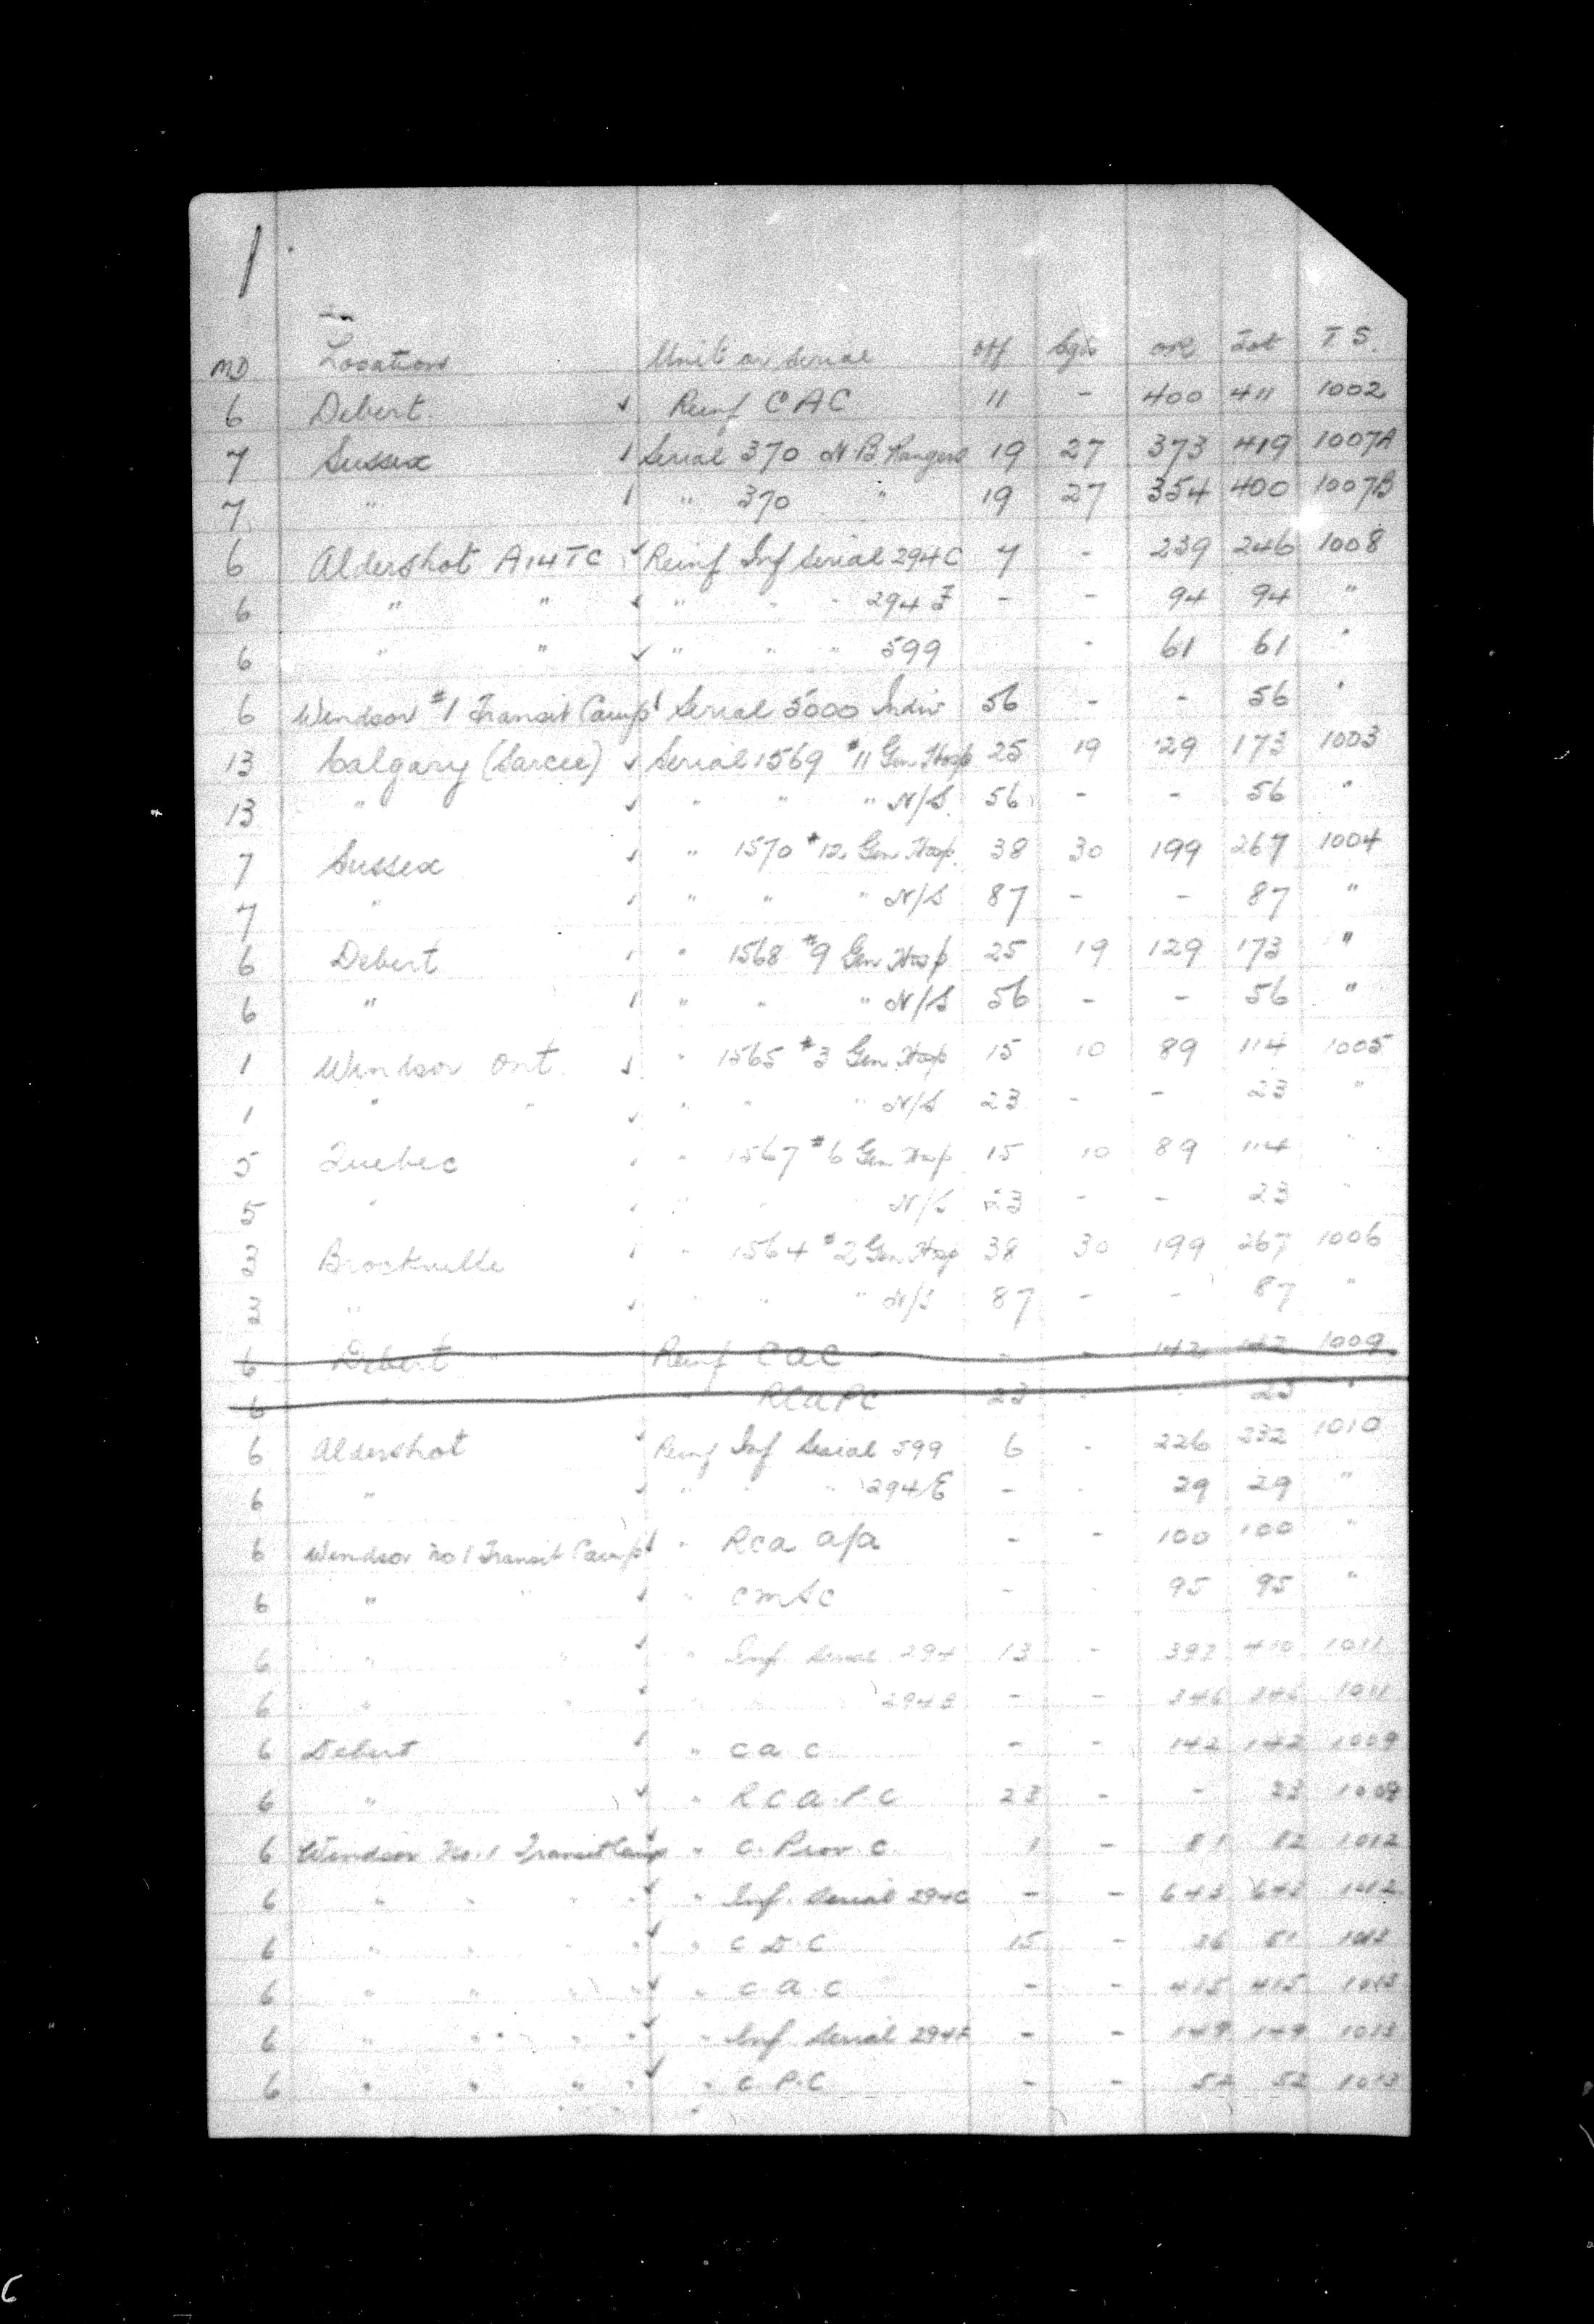 1
MD Location Unit or Serial Off Sgts ORs Tot T.S.
6 Debert ✓ Reinf CAC 11 - 400 411 1002
7 Sussex ✓ Serial 370 N B Rangers 19 27 373 419 1007A
7 " ✓ " 370 " 19 27 354 400 1007B
6 Aldershot A14TC ✓ Reinf Inf Serial 294C 7 - 239 246 1008
6 " " ✓ " " " 294 - - 94 94 "
6 " " ✓ " " " 599 - 61 61 "
6 Windsor #1 Transit Camp ✓ Serial 5000 Indiv 56 - - 56 "
13 Calgary (Sarcee) ✓ Serial 1569 #11 Gen Hosp 25 19 129 173 1003
13 " ✓ " " " N/S 56 - - 56 "
7 Sussex ✓ " 1570 #12 Gen Hosp. 38 30 199 267 1004
7 " ✓ " " " N/S 87 - - 87 "
6 Debert ✓ " 1568 #9 Gen Hosp 25 19 129 173 "
6 " ✓ " " " N/S 56 - - 56 "
1 Windsor Ont. ✓ " 1565 #3 Gen Hosp 15 10 89 114 1005
1 " " ✓ " " " N/S 23 - - 23 "
5 Quebec ✓ " 1567 #6 Gen Hosp 15 10 89 114 "
5 " ✓ " " N/S 23 - - 23 "
3 Brockville ✓ " 1564 #2 Gen Hosp 38 30 199 267 1006
3 " ✓ " " " N/S 87 - - 87 "
6 Debert Reinf CAC - - 142 142 1009
6 " " RCAPC 23 - - 23 "
6 Aldershot ✓ Reinf Inf Serial 599 6 - 226 232 1010
6 " ✓ " " " 294E - - 29 29 "
6 Windsor No 1 Transit Camp ✓ " RCA A/A - - 100 100 "
6 " " ✓ " CMSC - - 95 95 "
6 " " ✓ " Inf Serial 294 13 - 397 410 1011
6 " " ✓ " " " 294B - - 346 346 1011
6 Debert ✓ " C A C - - 142 142 1009
6 " ✓ " R C A P C 23 - - 23 1009
6 Windsor No. 1 Transit Camp ✓ " C. Prov. C. 1 - 81 82 1012
6 " " " " ✓ " Inf. Serial 294C - - 643 643 1012
6 " " " " ✓ " C D C 15 - 36 51 1012
6 " " " " ✓ " C. A. C - - 415 415 1013
6 " " " " ✓ " Inf Serial - - 149 149 1013
6 " " " " ✓ " C. P. C - - 52 52 1013